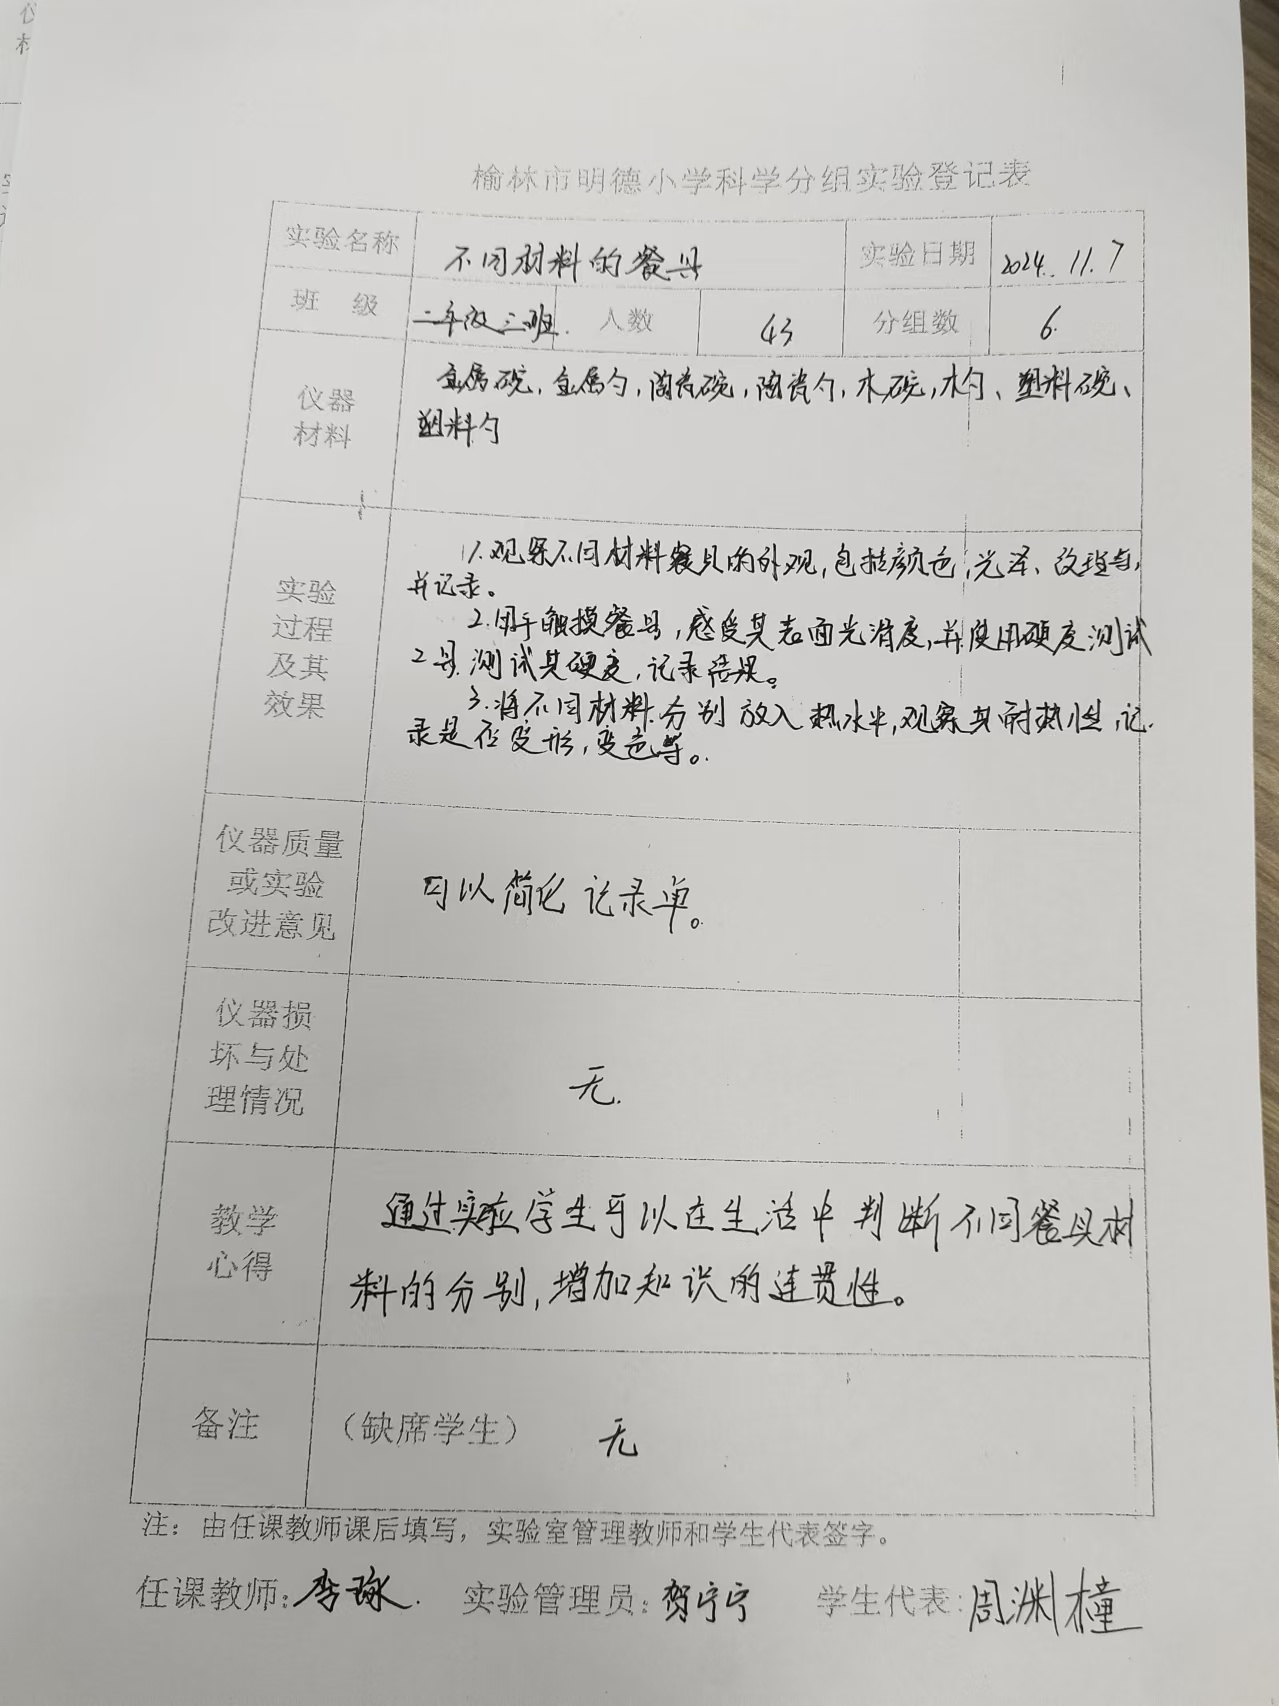 榆林市明德小学科学分组实验登记表
实验名称 不同材料的餐具 实验日期 2024.11.7
班 级 二年级三班. 人数 43 分组数 6.
仪器材料 金属碗,金属勺,陶瓷碗,陶瓷勺,木碗,木勺、塑料碗、
塑料勺
实验过程及其效果
1.观察不同材料餐具的外观,包括颜色,光泽、纹理等,
并记录。
2.用手触摸餐具,感受其表面光滑度,并使用硬度测试
工具.测试其硬度,记录结果。
3.将不同材料分别放入热水中,观察其耐热性,记
录是否变形,变色等。
仪器质量或实验改进意见 可以简化记录单。
仪器损坏与处理情况 无.
教学心得 通过实验学生可以在生活中判断不同餐具材
料的分别,增加知识的连贯性。
备注 （缺席学生） 无
注：由任课教师课后填写，实验室管理教师和学生代表签字。
任课教师:李 实验管理员:贺宁宁 学生代表:周渊橦